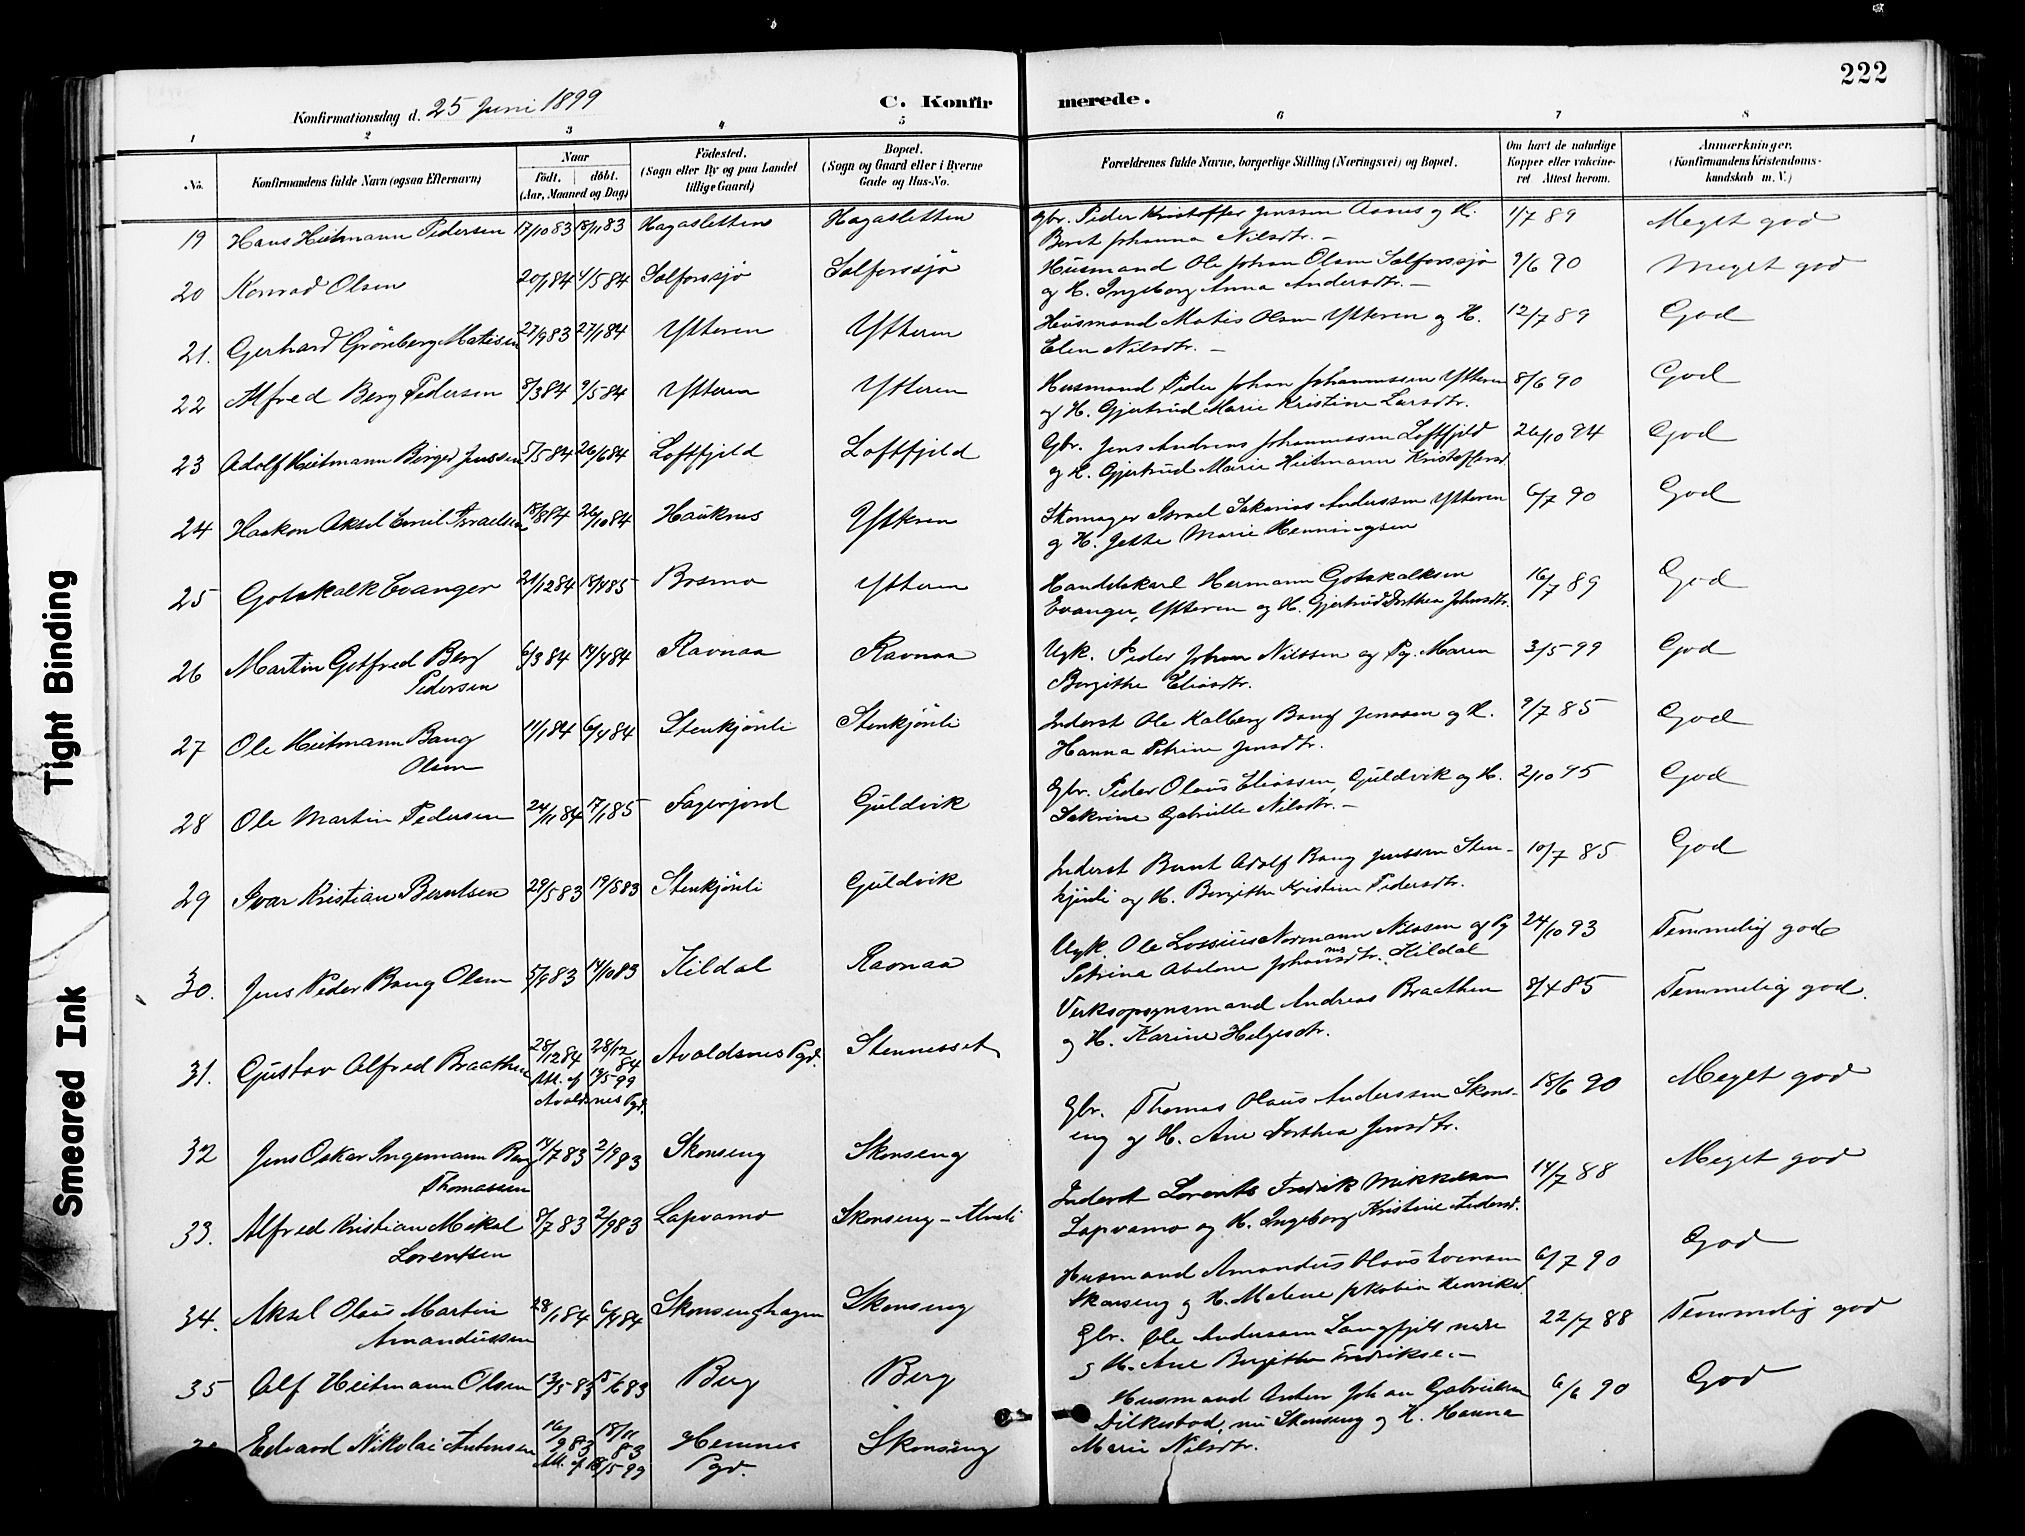 222
Konfirmationsdag d. 25 Juni 1899
C. Konfirmerede.
1 2 3 4 5 6 7 8
No. Konfirmandens fulde Navn (ogsaa Efternavn) Naar födt. döbt. (Aar, Maaned og Dag) Födested. (Sogn eller By og paa Landet tillige Gaard) Bopæl. (Sogn og Gaard eller i Byerne Gade og Hus-No. Forældrenes fulde Navne, borgerlige Stilling (Næringsvei) og Bopæl. Om havt de naturlige Kopper eller vakcineret Attest herom. Anmærkninger. (Konfirmandens Kristendomskundskab m. V.)
19 Hans Heitmann Pedersen 17/10 83 18/11 83 Hagasletten Hagasletten Gbr. Peder Kristoffer Jenssen og H. 1/7 89 Meget god
Beret Johanna Nilsdtr. –
20 Konrad Olsen 20/1 84 4/5 84 Solforssjø Solforssjø Husmand Ole Johan Olsen Solforssjø 9/6 90 Meget god
og H. Ingeborg Anna Andersdtr. –
21. Gerhard Grönberg Matisen 27/9 83 27/1 84 Ytteren Ytteren Husmand Matis Olsen Ytteren og H. 12/7 89 God
Elen Nilsdtr. –
22 Alfred Berg Pedersen 8/3 84 9/5 84 Ytteren Ytteren Husmand Peder Johan Johannessen Ytteren 8/6 90 God
og H. Gjertrud Marie Kristine Larsdtr.
23 Adolf Heitmann Birger Jenssen 5/5 84 26/6 84 Loftfjeld Loftfjeld Gbr. Jens Andreas Johannessen Loftfjeld 26/10 94 God
og H. Gjertrud Marie Heitmann Kristoffersd.
24 Haakon Aksel Emil Israelsen 18/8 84 26/10 84 Hauknes Ytteren Skomager Israel Sakarias Anderssen Ytteren 6/7 90 God
og H. Jette Marie Henningsen
25 Gotskalk Evanger 21/12 84 18/4 85 Bosmo Ytteren Handelskarl Hermann Gotskalksen 16/7 89 God
Evanger, Ytteren og H. Gjertrud Dorthea Johnsdtr.
26 Martin Getfred Berg 6/3 84 14/4 84 Ravnaa Ravnaa Ugk. Peder Johan Nilssen og Pg. Maren 3/5 99 God
Pedersen Bergithe Eliasdtr.
27 Ole Heitmann Bang 11/1 84 6/4 84 Stenkjönli Stenkjönli Inderst Ole Kalberg Bang Jenssen og H. 9/7 85 God
Olsen Hanna Petrine Jensdtr.
28 Ole Martin Pedersen 24/11 84 17/1 85 Fagerjord Guldvik Gbr. Peder Olaus Eliassen, Guldvik og H. 2/10 95 God
Sakrine Gabrielle Nilsdtr. –
29 Ivar Kristian Berntsen 29/5 83 19/8 83 Stenkjönli Guldvik Inderst Bernt Adolf Bang Jenssen Sten- 10/7 85 God
kjönli og H. Bergithe Kristine Pedersdtr.
30. Jens Peder Bang Olsen 5/9 83 14/10 83 Kildal Ravnaa Ugk. Ole Lossius Normann Nilssen og Pg 24/10 93 Temmelig god
Petrina Abelone Johannesdtr. Kildal
31. Gustav Alfred Braathen 28/12 84 28/12 84 Avaldsnes Pgd. Stennesset Verksopsynsmand Andreas Braathen 8/4 85 Temmelig god.
Att. af Avaldsnes Pgd. 13/5 99 og H. Karine Helgesdtr.
32 Jens Oskar Ingemann Berg 14/7 83 2/9 83 Skonseng Skonseng Gbr. Thomas Olaus Anderssen Skons- 18/6 90 Meget god
Thomassen eng og H. Ane Dorthea Jensdtr.
33. Alfred Kristian Mikal 8/7 83 2/9 83 Lapvamo Skonseng – Inderst Lorents Fredrik Mikkelsen 14/7 88 Meget god
Lorentsen Lapvamo og H. Ingeborg Kristine Andersd.
34. Aksel Olai Martin 28/1 84 6/4 84 Skonsenghagen Skonseng Husmand Amandus Olaus Evensen 6/7 90 God
Amandussen Skonseng og H. Malene Jakobia Henriksd.
35 Alf Heitmann Olsen 13/5 83 15/6 83 Berg Berg Gbr. Ole Anderssen Langfjeld nedre 22/7 88 Temmelig god
og H. Ane Birgitha Fredrikse. –
Edvard Nikolai Antonsen 16/9 83 18/11 83 Hemnes Pgd. Skonseng Husmand Anton Johan Gabrielsen 6/6 90 God
Att. af 18/5 99 Dilkestad, nu Skonseng og H. Hanna
Marie Nilsdtr.
Tight Binding
Smeared Ink